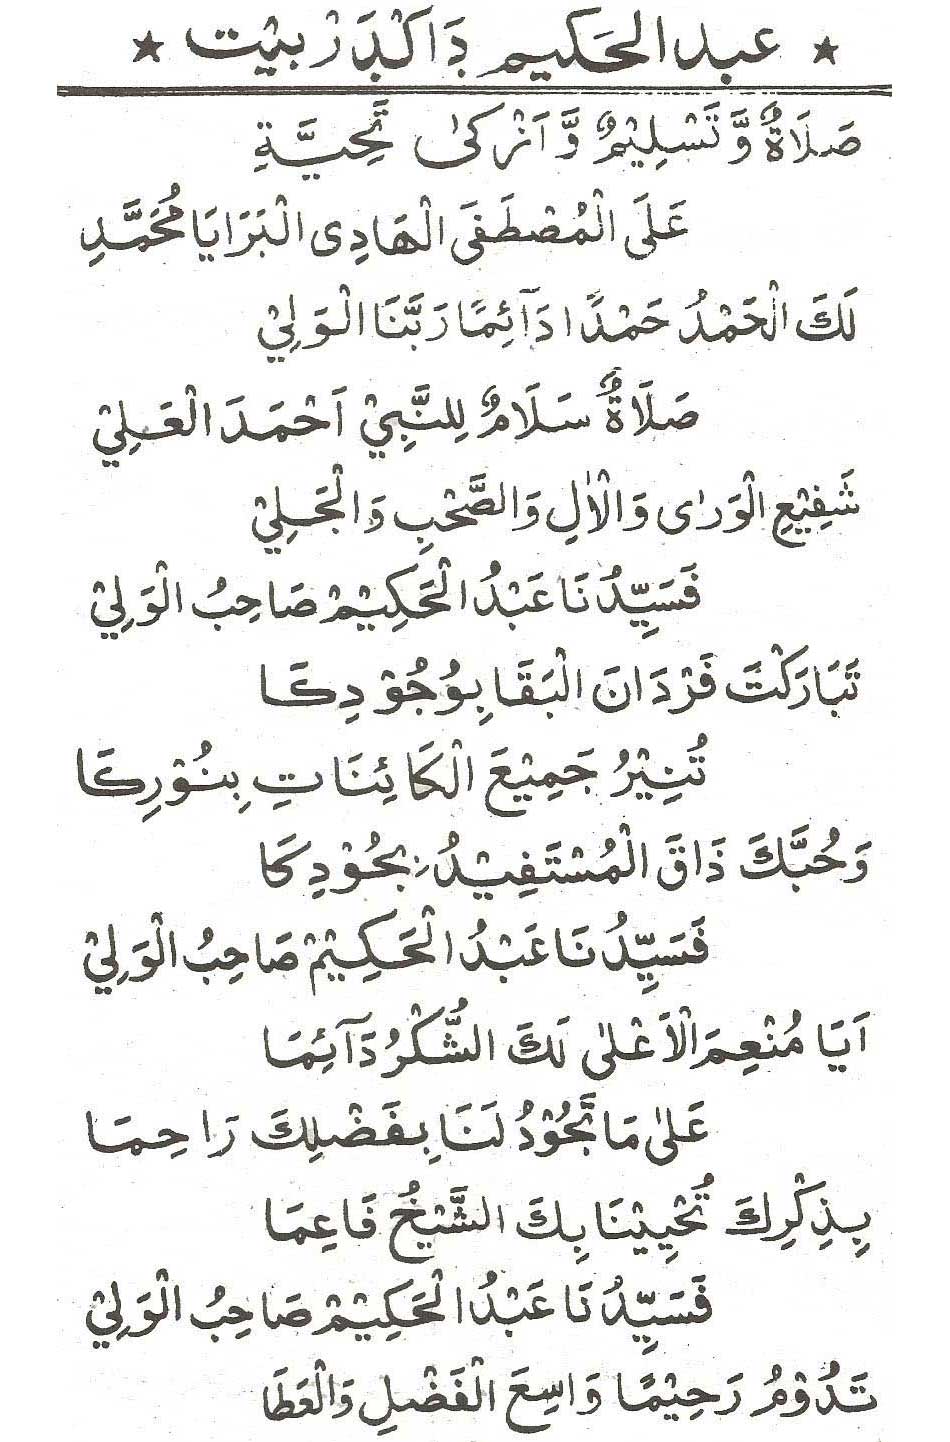 ★ عبد الحكيم دَاكْبَرْ بيْت ★
صَلَاةٌ وَّ تَسْلِيْمٌ وَّ اَزْكٰى تَحِيَّةِ
عَلَى الْمُصْطَفَى الْهَادِى الْبَرَايَا مُحَمَّدِ
لَكَ الْحَمْدُ حَمْدًا دَآئِمًا رَبَّنَا الْوَلِيْ
صَلَاةٌ سَلَامٌ لِلنَّبِيْ اَحْمَدَ الْعَلِيْ
شَفِيْعِ الْوَرٰى وَالْاٰلِ وَالصَّحْبِ وَالْجَلِيْ
فَسَيِّدُنَا عَبْدُ الْحَكِيْمْ صَاحِبُ الْوَلِيْ
تَبَارَكْتَ فَرْدَانَ الْبَقَا بِوُجُوْدِكَا
تُنِيْرُ جَمِيْعَ الْكَائِنَاتِ بِنُوْرِكَا
وَحُبَّكَ ذَاقَ الْمُسْتَفِيْدُ بِجُوْدِكَا
فَسَيِّدُنَا عَبْدُ الْحَكِيْمْ صَاحِبُ الْوَلِيْ
اَيَا مُنْعِمَ الْاَعْلٰى لَكَ الشُّكْرُ دَآئِمَا
عَلٰى مَا تَجُوْدُ لَنَا بِفَضْلِكَ رَاحِمَا
بِذِكْرِكَ تُحْيِيْنَا بِكَ الشَّيْخُ فَاعِمَا
فَسَيِّدُنَا عَبْدُ الْحَكِيْمْ صَاحِبُ الْوَلِيْ
تَدُوْمُ رَحِيْمًا وَاسِعَ الْفَضْلِ وَالْعَطَا